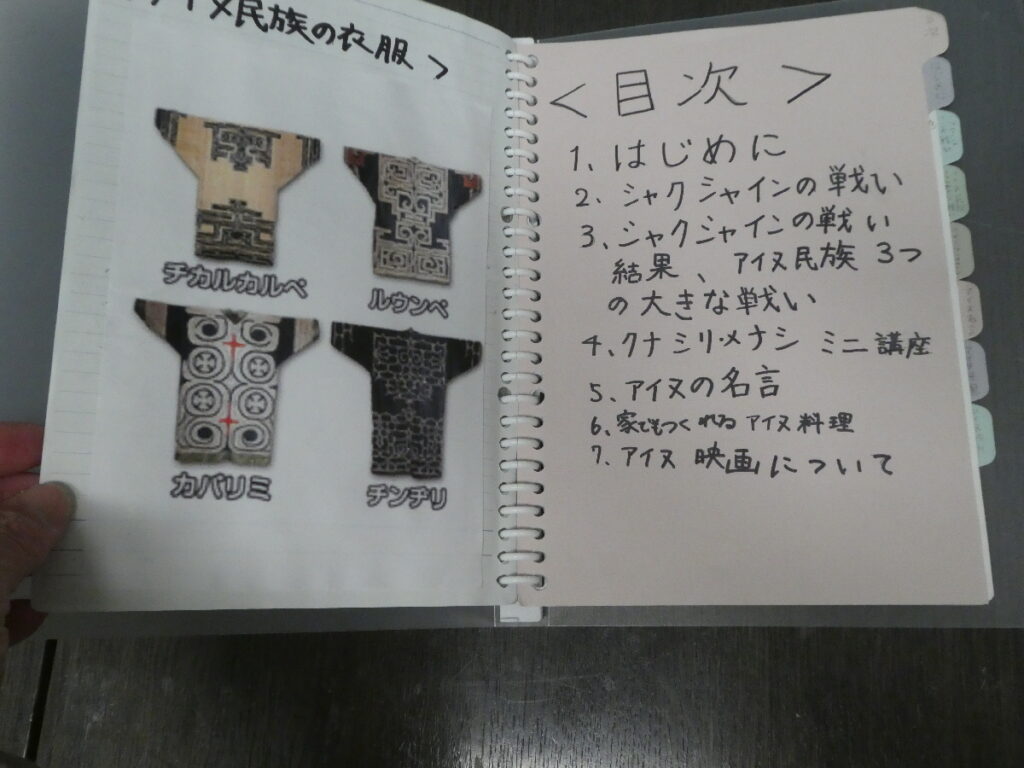 アイヌ民族の衣服>
チカルカルペ
ルウンペ
カパリミ
チンヂリ
<目次>
1、はじめに
2、シャクシャインの戦い
3、シャクシャインの戦い
結果、アイヌ民族 3つ
の大きな戦い
4、クナシリ・メナシ ミニ講座
5、アイヌの名言
6、家でもつくれるアイヌ料理
7、アイヌ 映画について